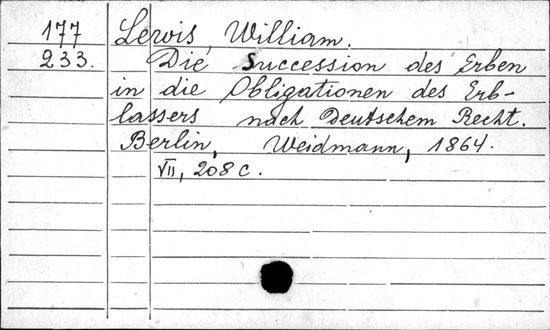 177 Lewis, William.
233. Die Succession des Erben
in die Obligationen des Erb-
lassers nach Deutschem Recht.
Berlin, Weidmann, 1864.
VII, 208 c.